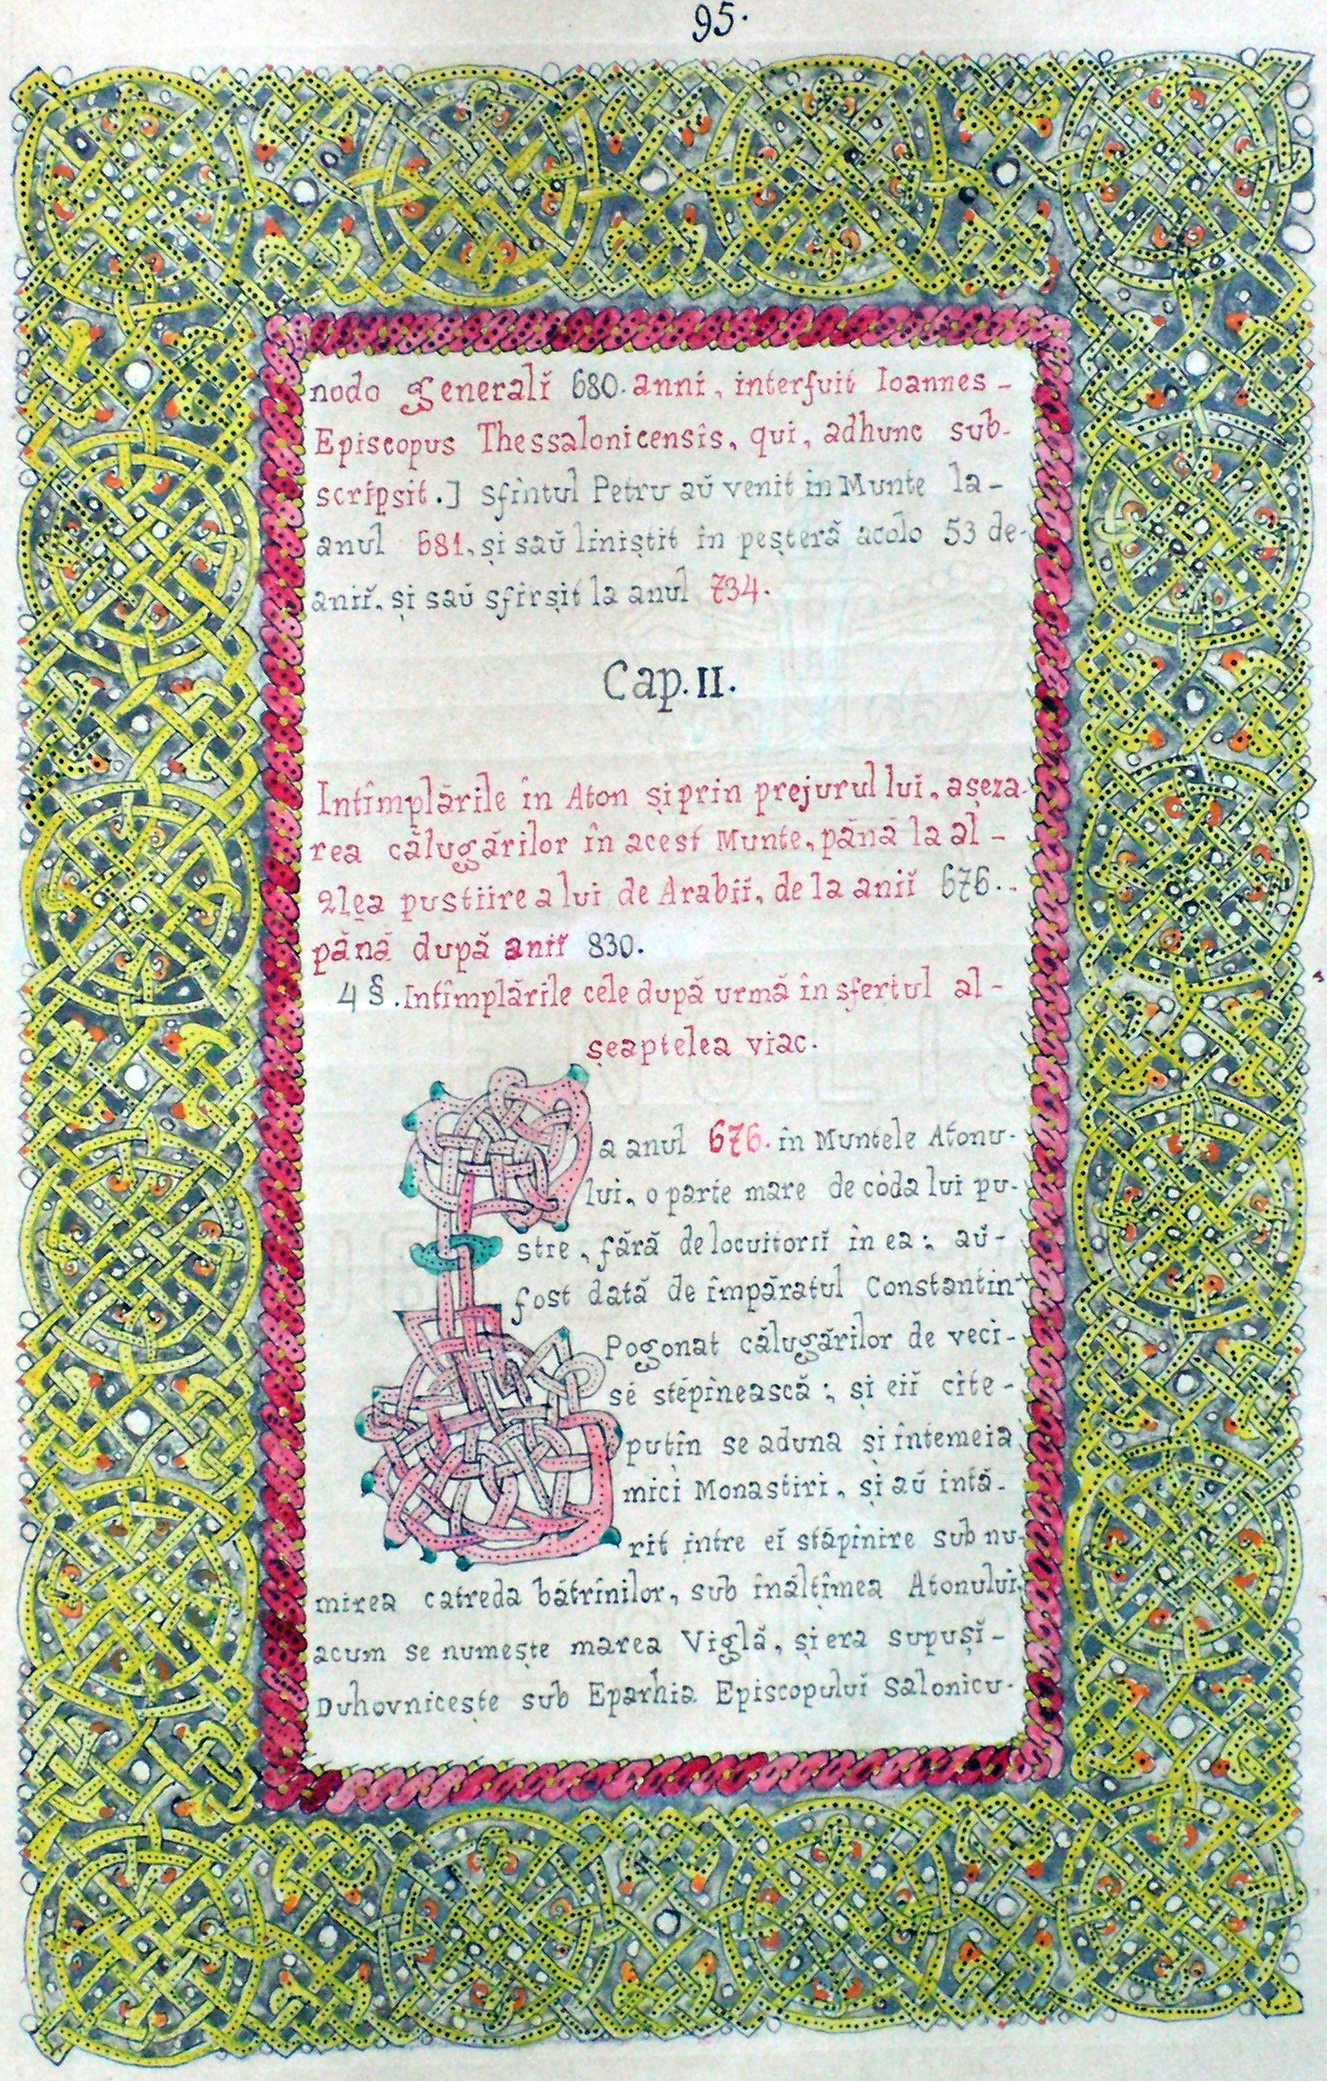 95.
nodo generalĭ 680. anni, interfuit Ioannes -
Episcopus Thessalonicensis, qui, adhunc sub-
scripsit.] sfîntul Petru aŭ venit in Munte la -
anul 681, și saŭ liniștit în peșteră acolo 53 de-
aniĭ, și saŭ sfîrșit la anul 734.
Cap. II.
Intîmplările în Aton și prin prejurul lui, așeza-
rea călugărilor în acest Munte, până la al -
2lea pustiire a lui de Arabiĭ, de la aniĭ 676..
până după aniĭ 830.
4 §. Intîmplările cele după urmă în sfertul al -
șeaptelea viac.
La anul 676. în Muntele Atonu-
lui, o parte mare de còda lui pu-
stre, fără de locuitoriĭ în ea; aŭ -
fost dată de împăratul Constantin
Pogonat călugărilor de veci-
sé stépînească; și eiĭ cîte -
puțin se aduna și întemeia
mici Monastiri, și aŭ intă-
rit intre eĭ stăpînire sub nu-
mirea catreda bătrînilor, sub înălțimea Atonului,
acum se numește marea Viglă, și era supușĭ -
Duhovnicește sub Eparhia Episcopuluĭ Salonicu-